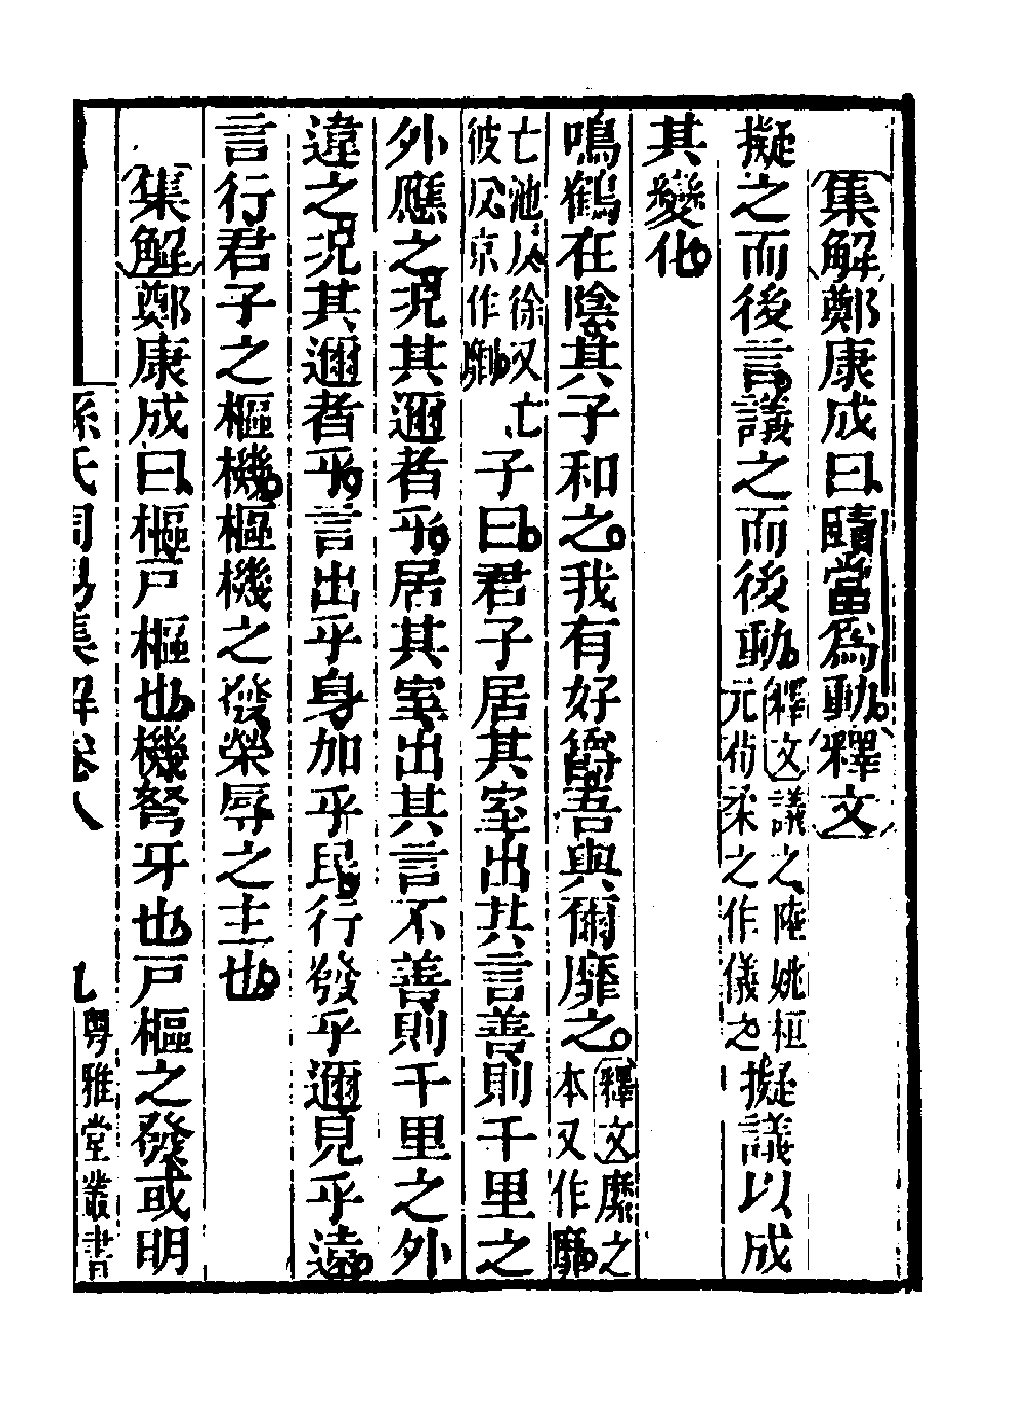 集解鄭康成曰賾當爲動釋文
擬之而後言議之而後動釋文議之陸姚桓
元荀柔之作儀之擬議以成
其變化
鳴鶴在陰其子和之我有好爵吾與爾靡之釋文靡之
本又作縻
亡池反徐又亡
彼反京作劘子曰君子居其室出其言善則千里之
外應之況其邇者乎居其室出其言不善則千里之外
違之況其邇者乎言出乎身加乎民行發乎邇見乎遠
言行君子之樞機樞機之發榮辱之主也
集解鄭康成曰樞戶樞也機弩牙也戶樞之發或明
孫氏周易集解卷八 九 粵雅堂叢書